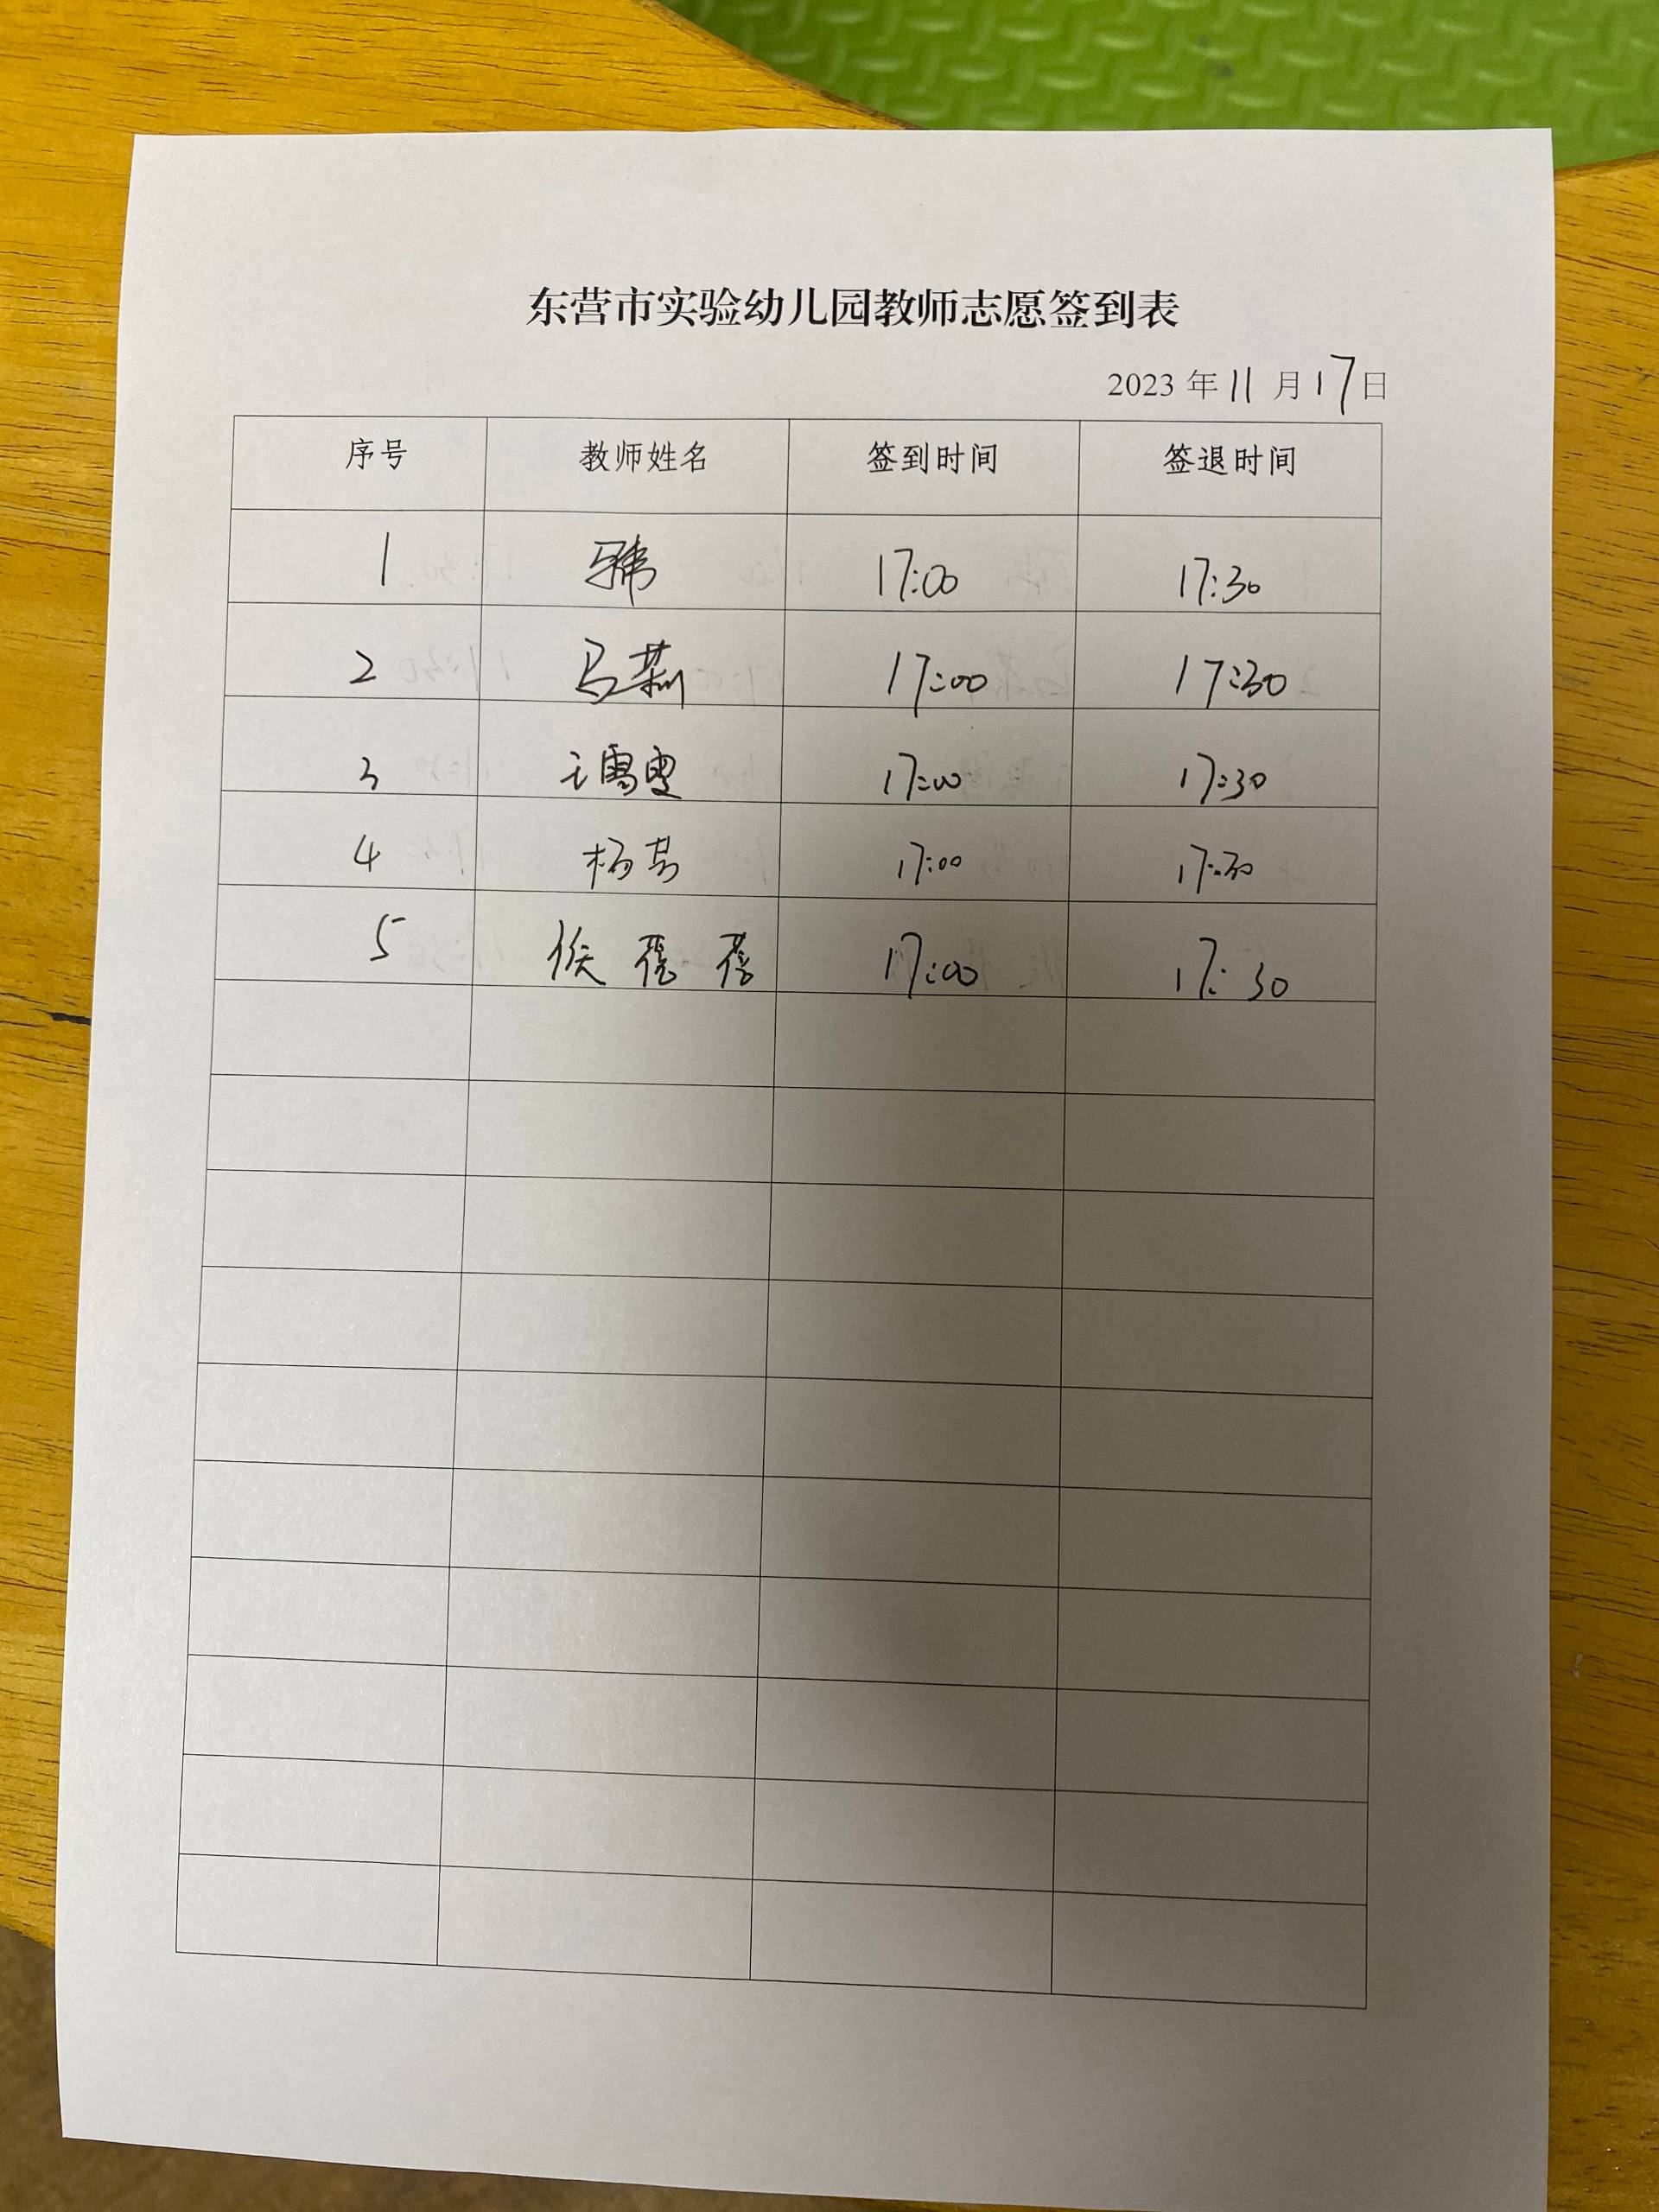 东营市实验幼儿园教师志愿签到表
2023 年 11 月 17 日
序号 教师姓名 签到时间 签退时间
1 17:00 17:30
2 马莉 17:00 17:30
3 17:00 17:30
4 杨芳 17:00 17:30
5 侯蓓蓓 17:00 17:30